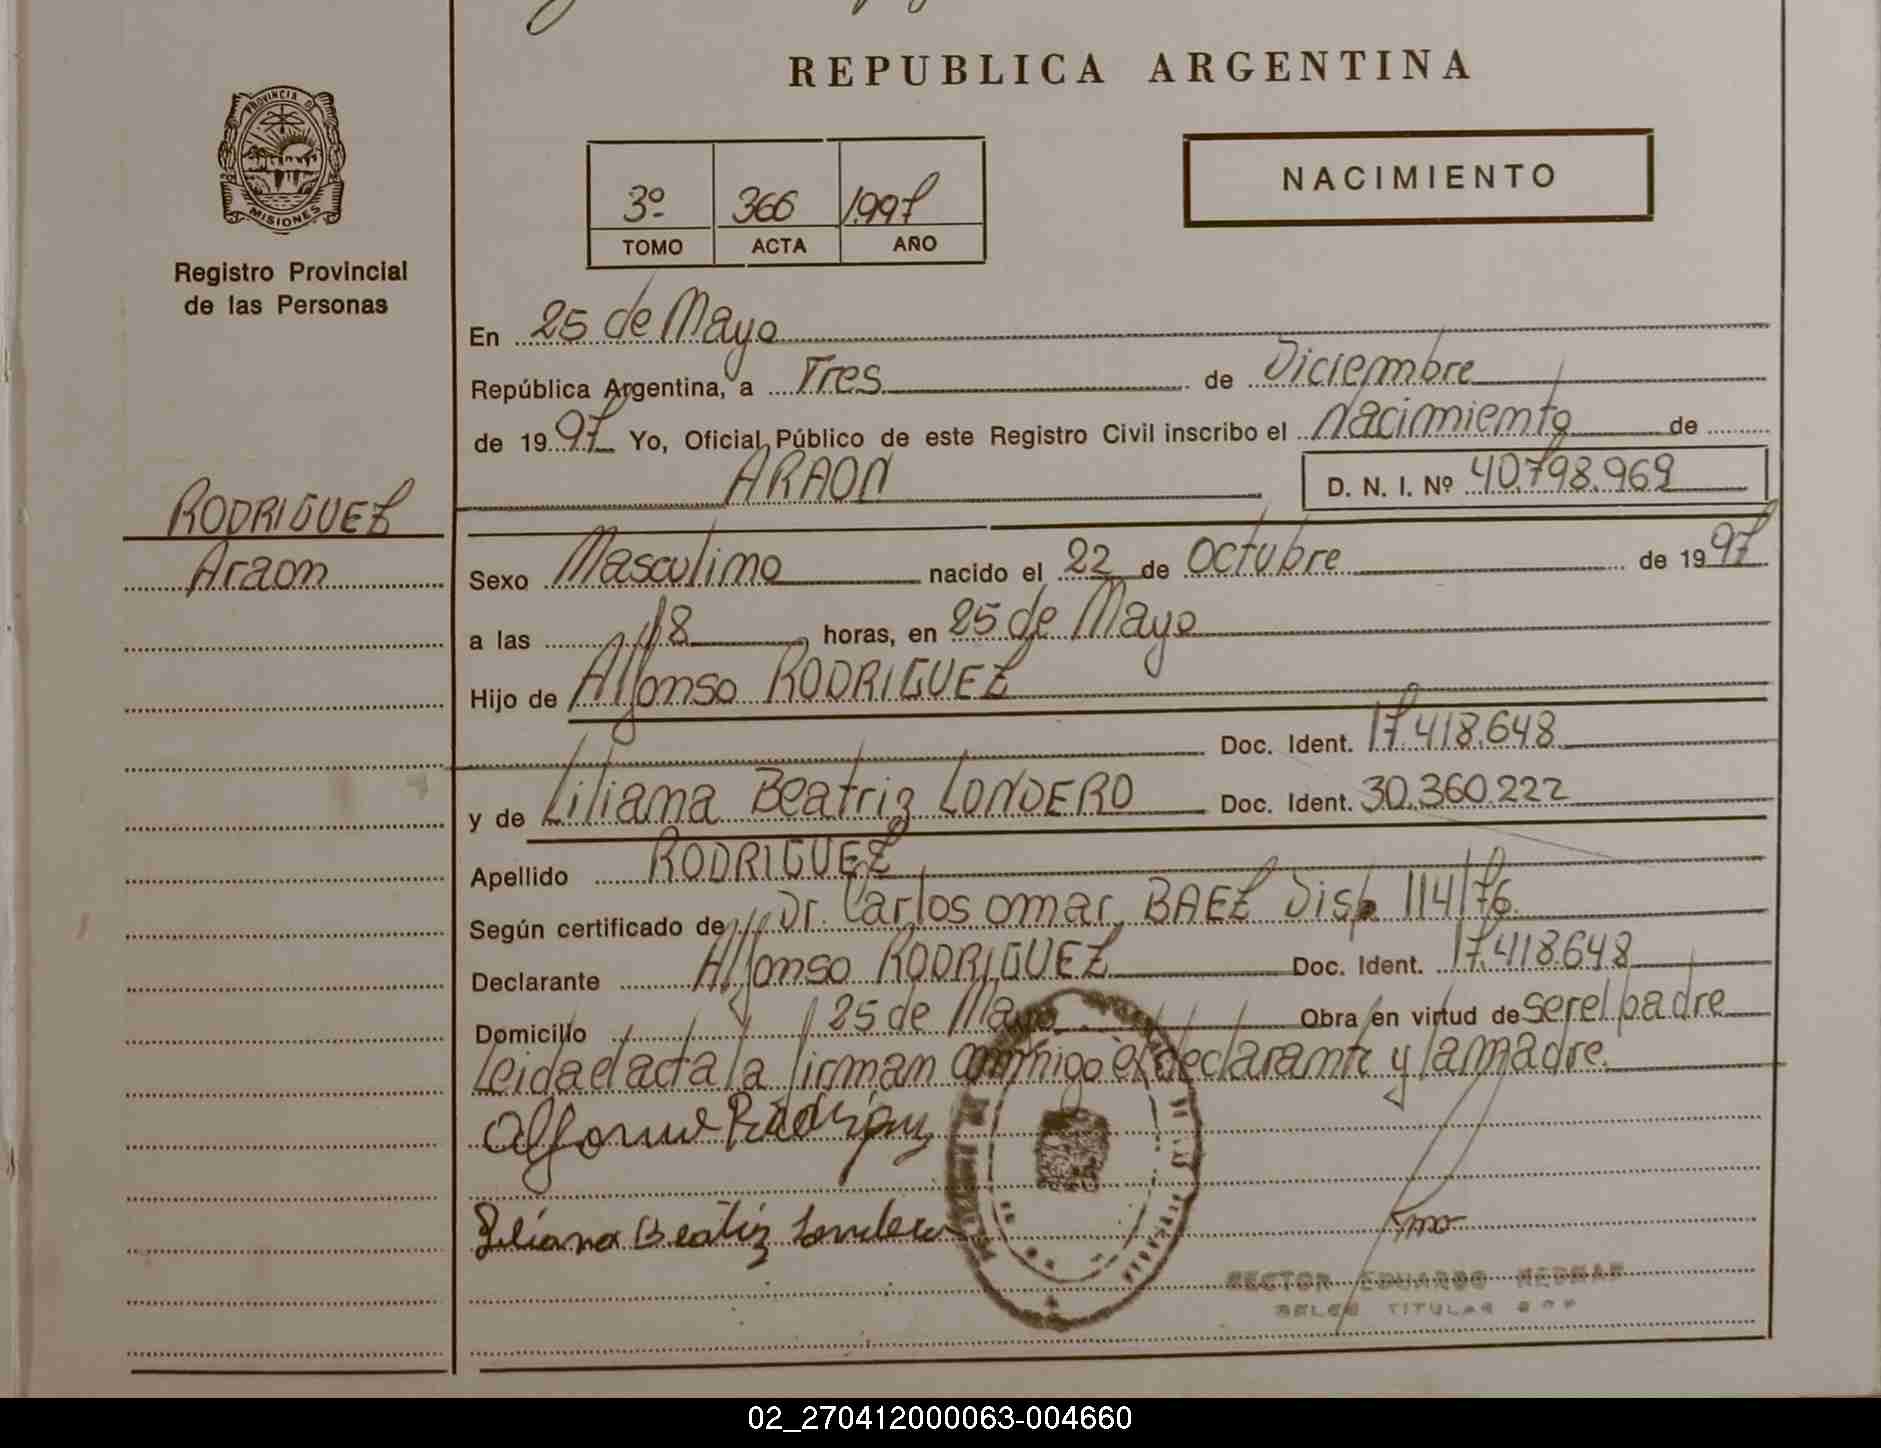 REPUBLICA ARGENTINA
PROVINCIA D
MISIONES
Registro Provincial
de las Personas
NACIMIENTO
3º 366 1997
TOMO ACTA AÑO
En 25 de Mayo
República Argentina, a Tres de Diciembre
de 1997 Yo, Oficial Público de este Registro Civil inscribo el Nacimiento de
ARAON D. N. I. Nº 40.798.969
RODRIGUEZ
Araon
Sexo Masculino nacido el 22 de Octubre de 1997
a las 18 horas, en 25 de Mayo
Hijo de Alfonso RODRIGUEZ
Doc. Ident. 17.418.648
y de Liliana Beatriz LONDERO Doc. Ident. 30.360.222
Apellido RODRIGUEZ
Según certificado de Dr. Carlos omar BAEZ Disp 114/76
Declarante Alfonso RODRIGUEZ Doc. Ident. 17.418.648
Domicilio 25 de Mayo Obra en virtud de ser el padre
Leida el acta la firman conmigo el declarante y la madre.
Alfonso Rodriguez
Liliana Beatriz Londero
HECTOR EDUARDO
TITULAR
02_270412000063-004660